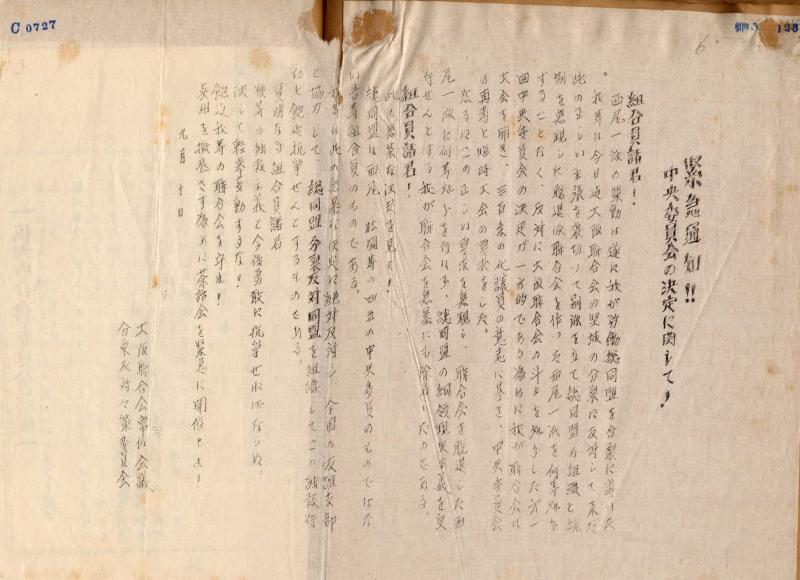 C 0727
緊急通知!!
中央委員会の決定に関して!
組合員諸君!
西尾一派の策動は遂に我が労働総同盟を分裂に導いた
。我等は今日迄大阪聯合会の堅城の分裂に反対して来た
此の正しい主張を裏切つて別派を立て総同盟の組織と統
制を無視した脱退派聯合会を作つた西尾一派を何等処分
することなく、反対に大阪聯合会の斗士を処分した第一
回中央委員会の決定が一方的である為めに我が聯合会は
大会を開き、三百余の代議員の意志に基き、中央委員会
の再考と臨時大会の要求をした。
然るにこの正しい要求を無視し、聯合会を脱退した西
尾一派に何等処分を行はず、総同盟の綱領現実主義を交
行せんとする我が聯合会を無暴にも除名したのである。
組合員諸君!
此の無暴な決定を見よ!
総同盟は西尾、松岡等の四五の中央委員のものではな
い吾等組合員のものである。
我等は此の無暴な決定に絶対反対し、全国の友誼支部
と協力して、総同盟分裂反対同盟を組織してこの独裁行
動と飽迄抗争せんとするものである。
賢明なる組合員諸君
彼等の独裁主義と今後勇敢に抗争せねばならぬ、
決して軽挙妄動するな!
飽迄我等の聯合会を守れ!
真相を徹底さす為めに茶話会を緊急に開催せよ!
九月十日
大阪聯合会常任会議
分裂反対対策委員会